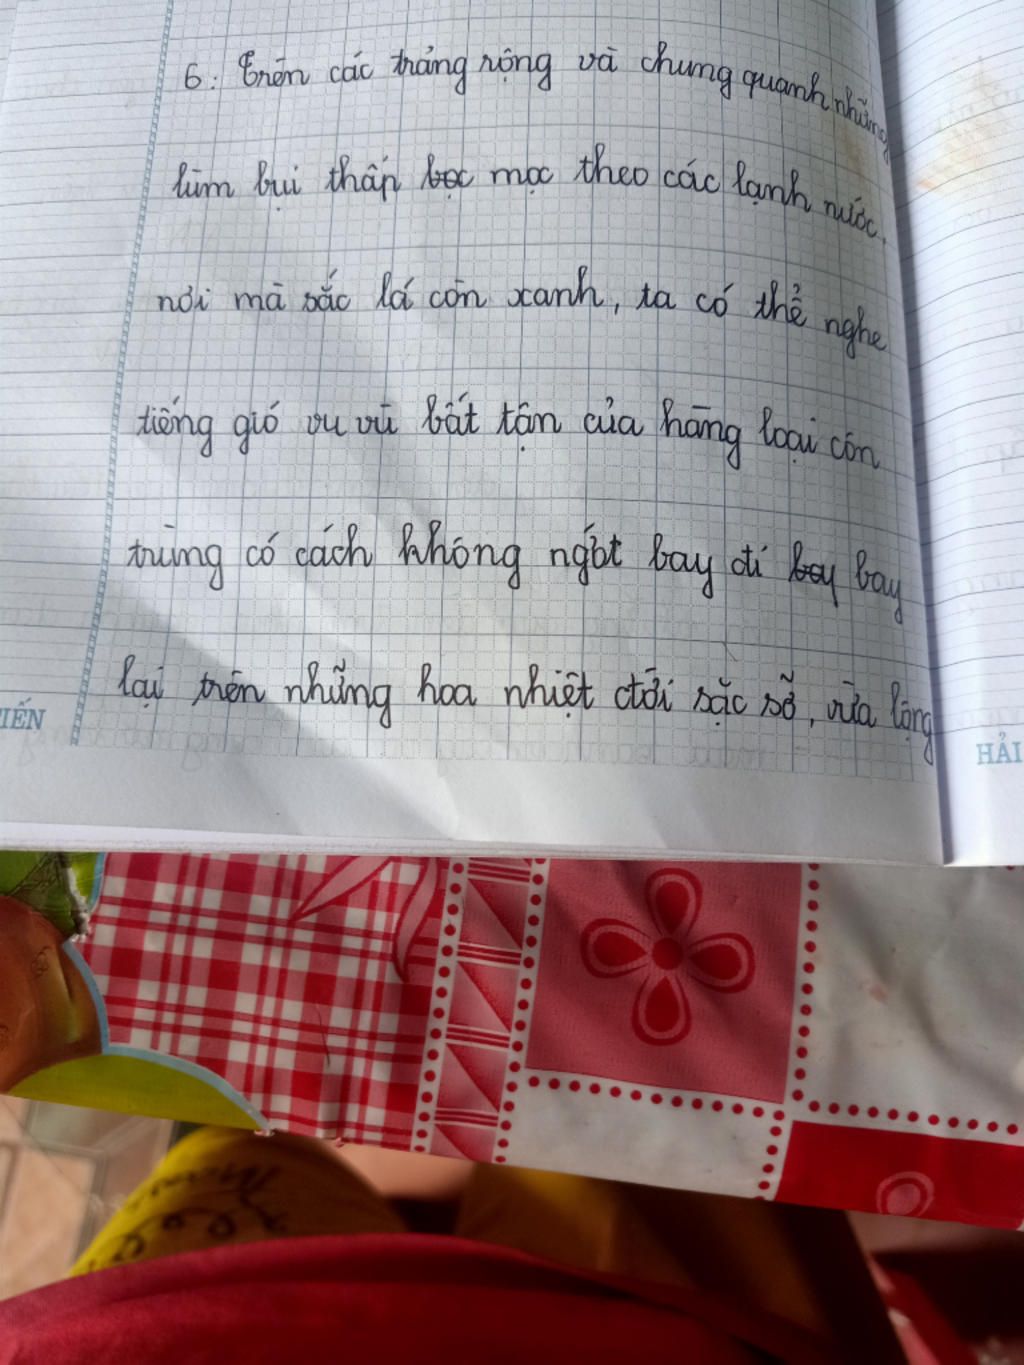 6. Trên các trảng rộng và chung quanh những
lùm bụi thấp bọc mọc theo các lạnh nước,
nơi mà sắc lá còn xanh, ta có thể nghe
tiếng gió vu vù bất tận của hàng loại côn
trùng có cách không ngớt bay đi bay bay
lại trên những hoa nhiệt đới sặc sỡ, vừa lộng
IẾN
HẢI